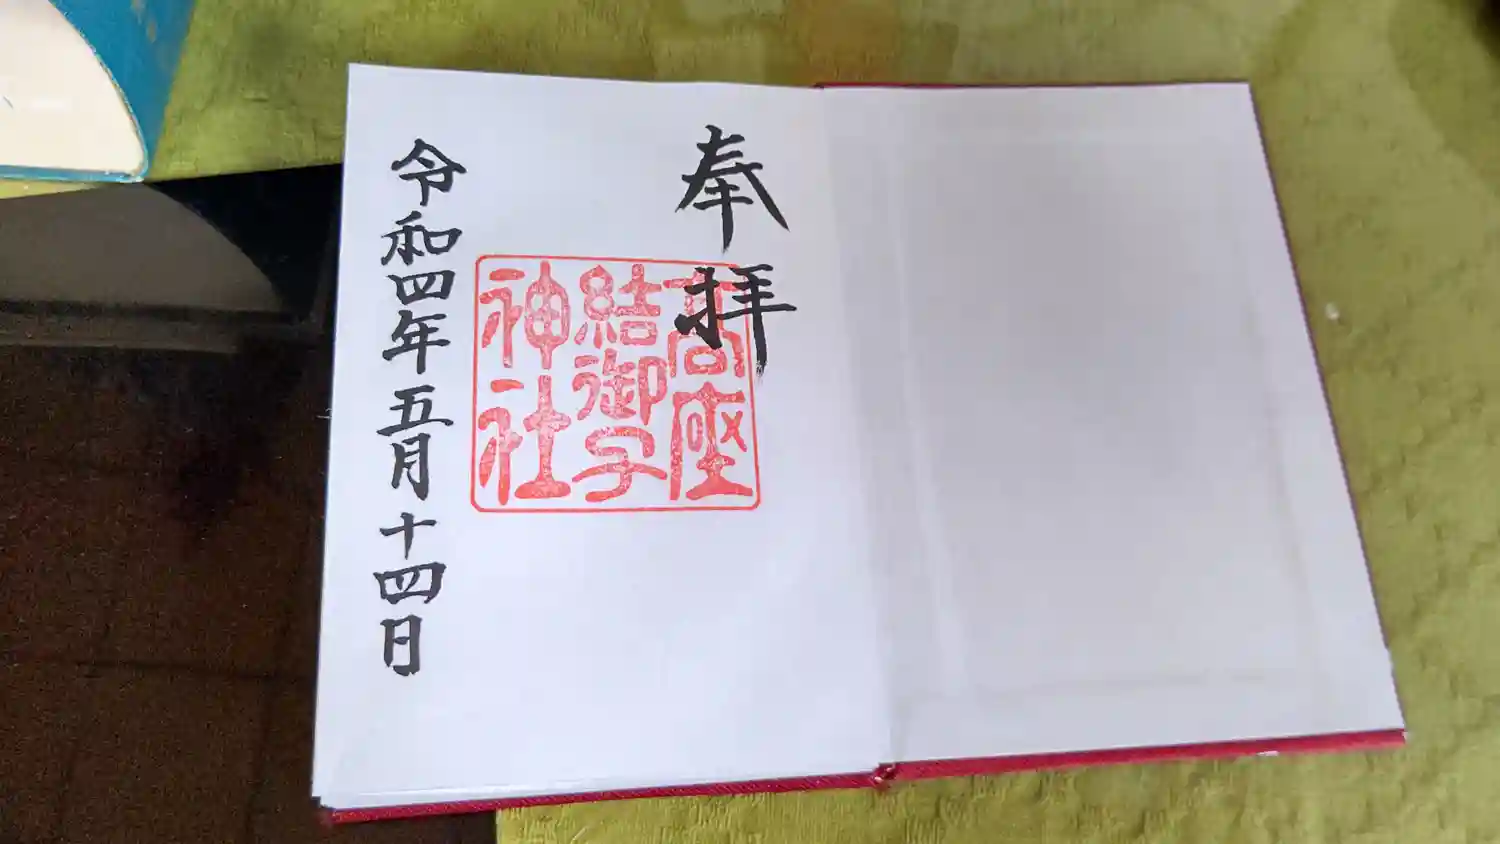 奉拝
高座
結御子
神社
令和四年五月十四日